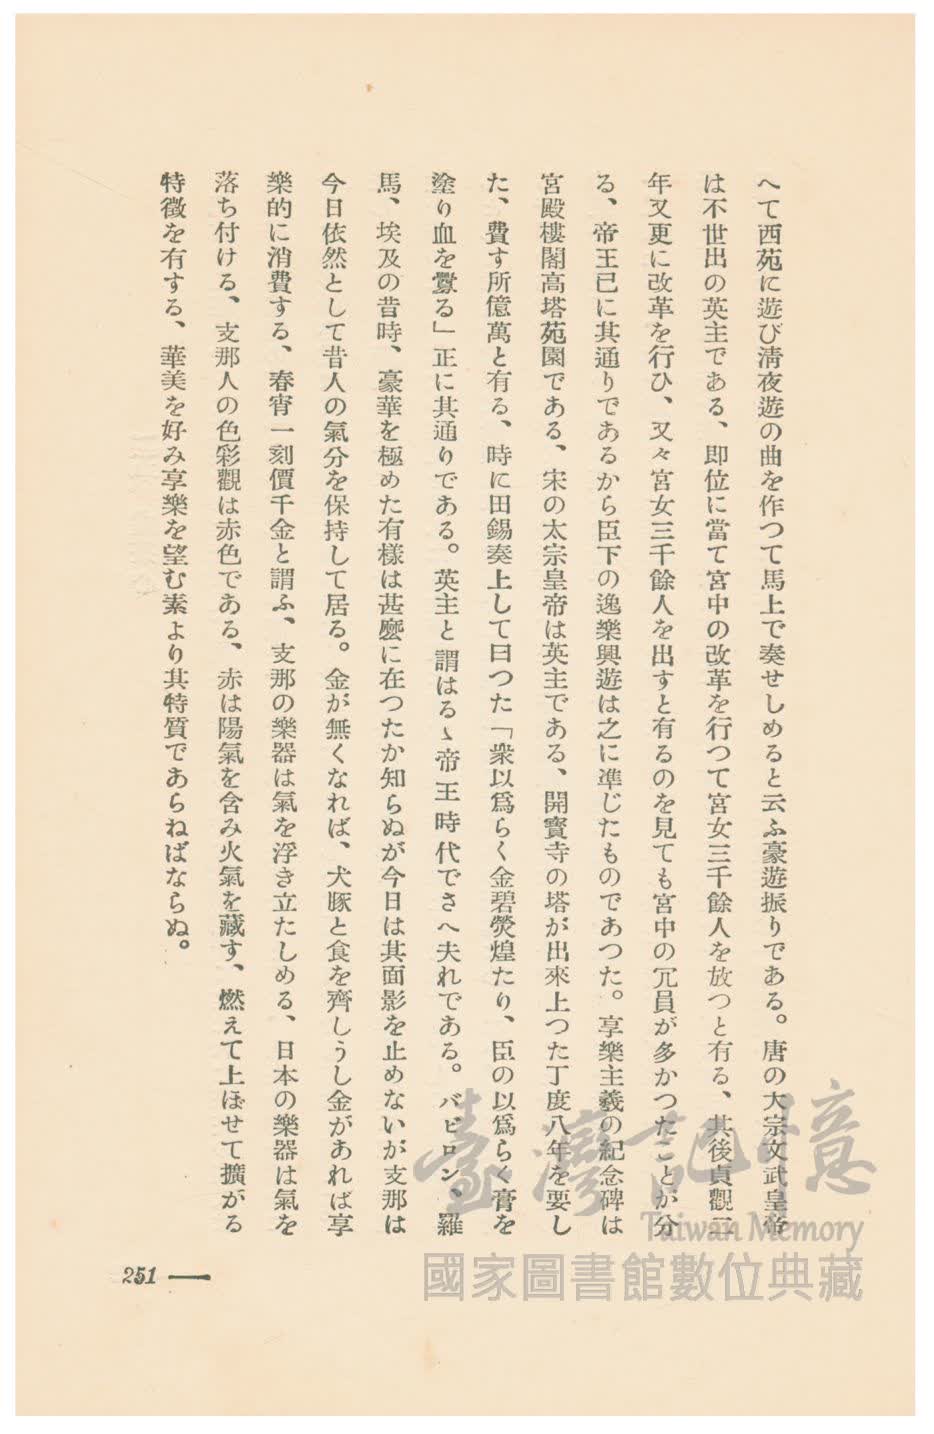 へて西苑に遊び淸夜遊の曲を作つて馬上で奏せしめると云ふ豪遊振りである。唐の大宗文武皇帝
は不世出の英主である、卽位に當て宮中の改革を行つて宮女三千餘人を放つと有る、其後貞觀二
年又更に改革を行ひ、又々宮女三千餘人を出すと有るのを見ても宮中の冗員が多かつたことが分
る、帝王已に其通りであるから臣下の逸樂興遊は之に凖じたものであつた。享樂主義の紀念碑は
宮殿樓閣高塔苑園である、宋の太宗皇帝は英主である、開寳寺の塔が出來上つた丁度八年を要し
た、費す所億萬と有る、時に田錫奏上して曰つた「衆以爲らく金碧熒煌たり、臣の以爲らく膏を
塗り血を釁る」正に其通りである。英主と謂はるゝ帝王時代でさへ夫れである。バビロン、羅
馬、埃及の昔時、豪華を極めた有樣は甚麽に在つたか知らぬが今日は其面影を止めないが支那は
今日依然として昔人の氣分を保持して居る。金が無くなれば、犬豚と食を齊しうし金があれば享
樂的に消費する、春宵一刻價千金と謂ふ、支那の樂器は氣を浮き立たしめる、日本の樂器は氣を
落ち付ける、支那人の色彩觀は赤色である、赤は陽氣を含み火氣を藏す、燃えて上ぼせて擴がる
特徵を有する、華美を好み享樂を望む素より其特質であらねばならぬ。
251
臺灣記憶
Taiwan Memory
國家圖書館數位典藏